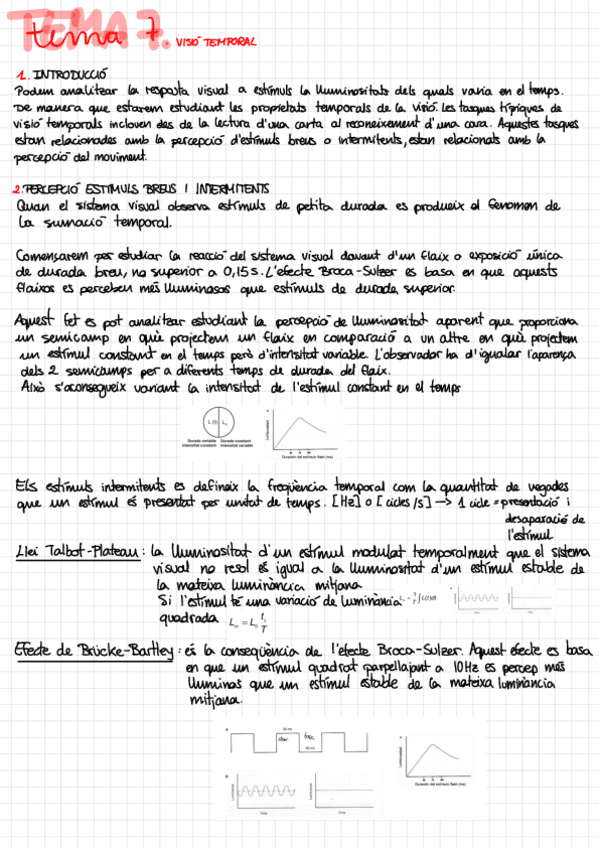 TEMA 7.
tema 7. VISIÓ TEMPORAL
1. INTRODUCCIÓ
Podem analitzar la resposta visual a estímuls la lluminositats dels quals varia en el temps.
De manera que estarem estudiant les propietats temporals de la visió. Les tasques típiques de
visió temporals inclouen des de la lectura d'una carta al reconeixement d'una cara. Aquestes tasques
estan relacionades amb la percepció d'estímuls breus o intermitents, estan relacionats amb la
percepció del moviment.
2. PERCEPCIÓ ESTIMULS BREUS I INTERMITENTS
Quan el sistema visual observa estímuls de petita durada es produeix el fenomen de
la sumació temporal.
Començarem per estudiar la reacció del sistema visual davant d'un flaix o exposició única
de durada breu, no superior a 0,15 s. L'efecte Broca-Sulzer es basa en que aquests
flaixos es perceben més lluminosos que estímuls de durada superior.
Aquest fet es pot analitzar estudiant la percepció de lluminositat aparent que proporciona
un semicamp en què projectem un flaix en comparació a un altre en què projectem
un estímul constant en el temps però d'intensitat variable. L'observador ha d'igualar l'aparença
dels 2 semicamps per a diferents temps de durada del flaix.
Això s'aconsegueix variant la intensitat de l'estímul constant en el temps
Durada variable Durada constant
Intensitat constant Intensitat variable
Lluminositat
Duración del estímulo flash (ms)
Els estímuls intermitents es defineix la freqüència temporal com la quantitat de vegades
que un estímul és presentat per unitat de temps. [Hz] o [cicles/s] → 1 cicle = presentació i
desaparació de
l'estímul
Llei Talbot-Plateau: la lluminositat d'un estímul modulat temporalment que el sistema
visual no resol és igual a la lluminositat d'un estímul estable de
la mateixa luminància mitjana
Si l'estímul té una variació de luminància
quadrada
Efecte de Brücke-Bartley: és la conseqüència de l'efecte Broca-Sulzer. Aquest efecte es basa
en que un estímul quadrat parpellejant a 10Hz es percep més
lluminos que un estímul estable de la mateixa luminància
mitjana.
A
50 ms
50 ms
B
Duración del estímulo flash (ms)